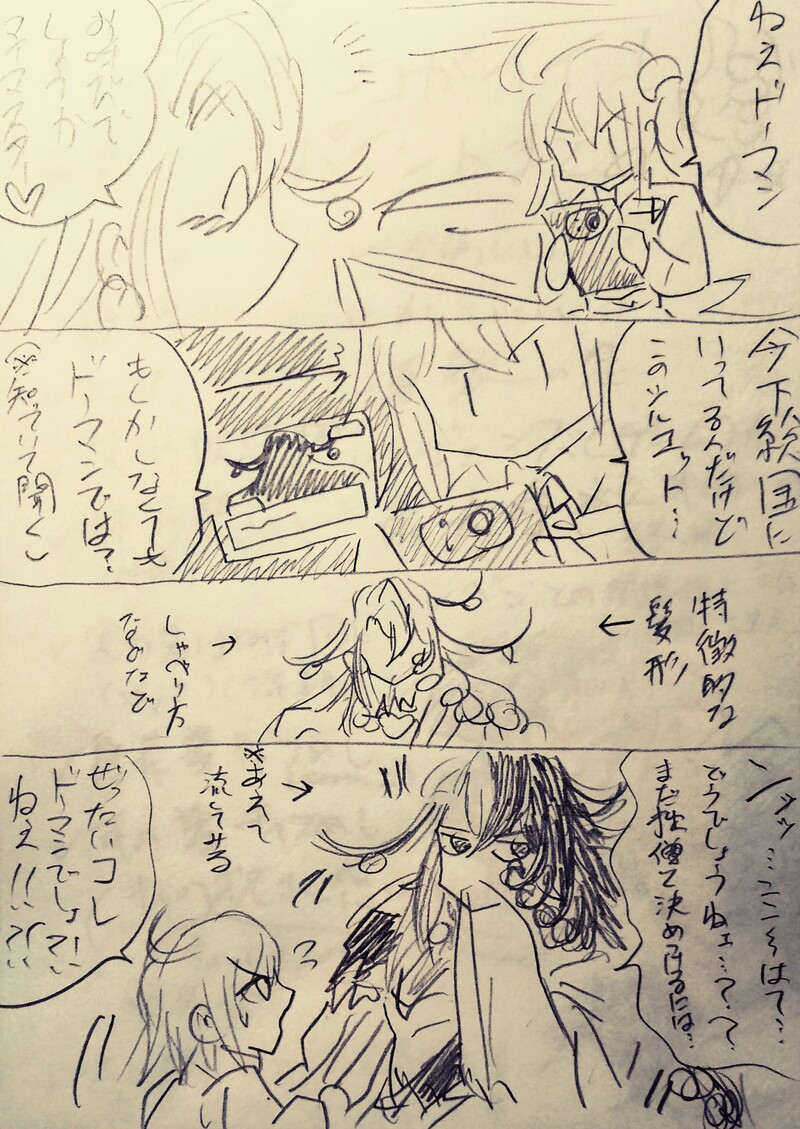 ねえドーマン
お呼びで
しょうか
マイマスター♡
今下総国に
いってるんだけど
このシルエット…
もしかしなくても
ドーマンでは?
(※知っていて聞く)
特徴的な
髪形
しゃべり方
などなど
ンンッ…ここはて…
どうでしょうねェ…?
まだ拙僧と決めつけるには…
※あえて
流してみる
ぜったいコレ
ドーマンでしょ?!
ねえ!!?!